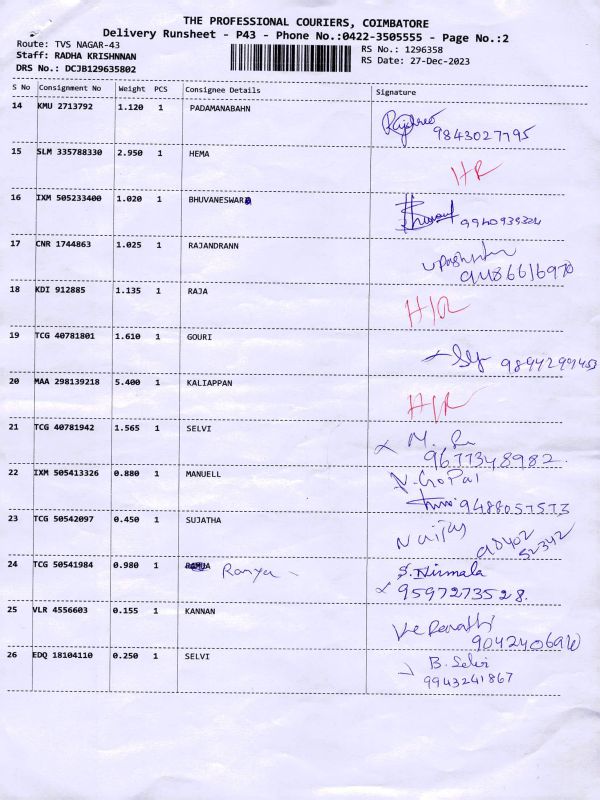 THE PROFESSIONAL COURIERS, COIMBATORE
Delivery Runsheet - P43 - Phone No.:0422-3505555 - Page No.:2
Route: TVS NAGAR-43 RS No.: 1296358
Staff: RADHA KRISHNNAN RS Date: 27-Dec-2023
DRS No.: DCJB129635802
S No Consignment No Weight PCS Consignee Details Signature
14 KMU 2713792 1.120 1 PADAMANABAHN
9843027795
15 SLM 335788330 2.950 1 HEMA
H/R
16 IXM 505233400 1.020 1 BHUVANESWARI
9940939324
17 CNR 1744863 1.025 1 RAJANDRANN
9486616970
18 KDI 912885 1.135 1 RAJA
H/R
19 TCG 40781801 1.610 1 GOURI
9894299453
20 MAA 298139218 5.400 1 KALIAPPAN
H/R
21 TCG 40781942 1.565 1 SELVI M.
9677348982.
22 IXM 505413326 0.880 1 MANUELL N. GoPal
9488057573
23 TCG 50542097 0.450 1 SUJATHA
98402
52342
24 TCG 50541984 0.980 1 Ramya - S. Nirmala
9597273528.
25 VLR 4556603 0.155 1 KANNAN
9042406910
26 EDQ 18104110 0.250 1 SELVI B. Selvi
9943241867